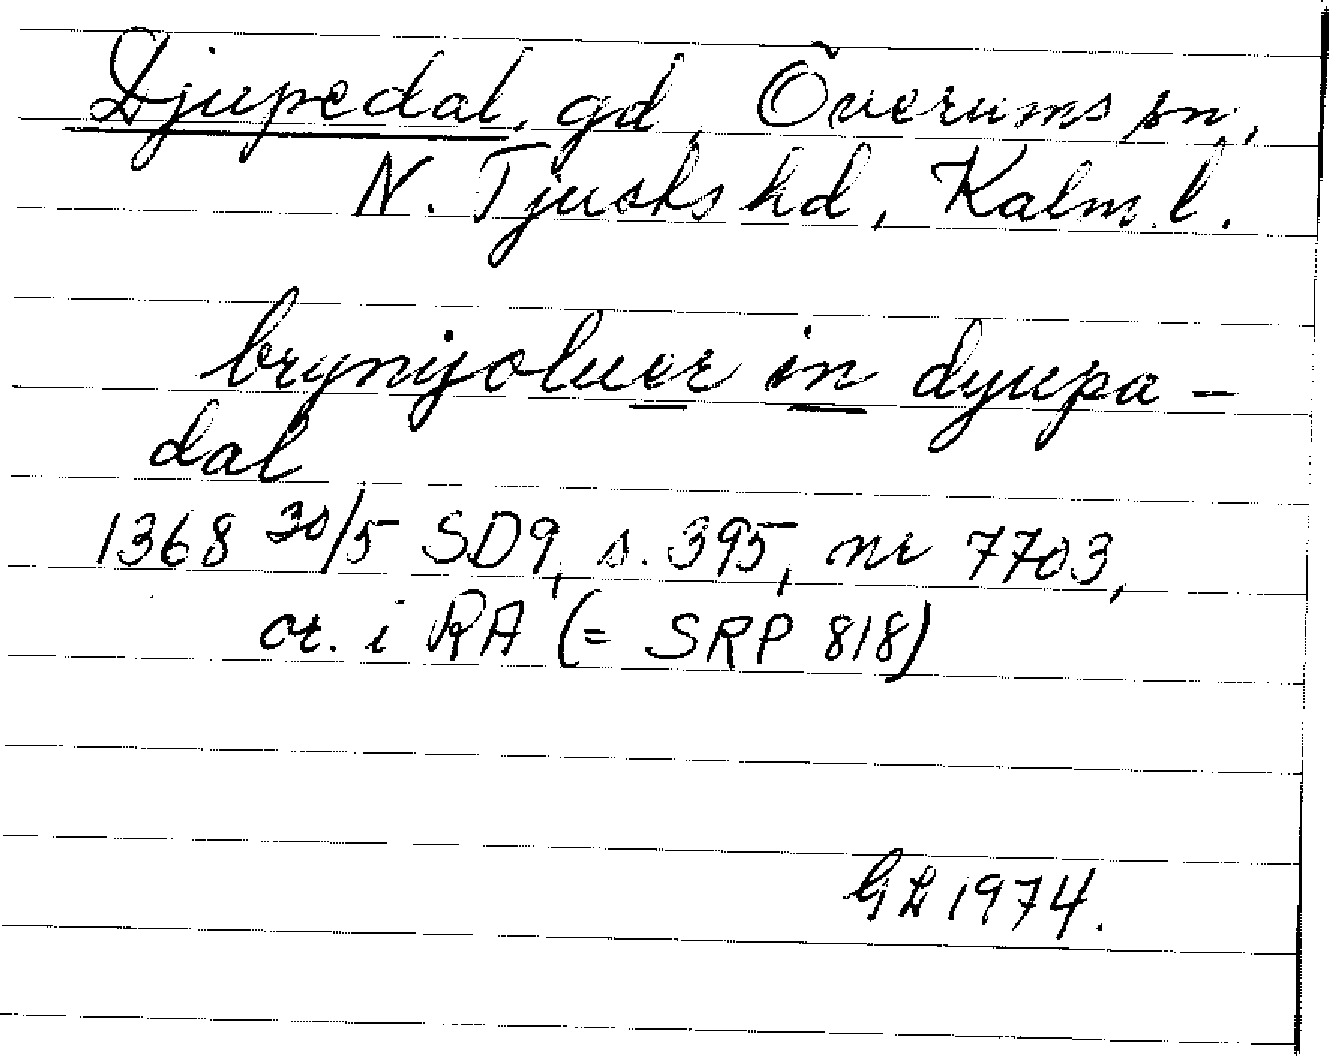 Djupedal, gd, Överums sn,
N. Tjusts hd, Kalm. l.
brynijoluer in dyupa-
dal
1368 30/5 SD9, s. 395, nr 7703,
or. i RA (= SRP 818)
GL 1974.